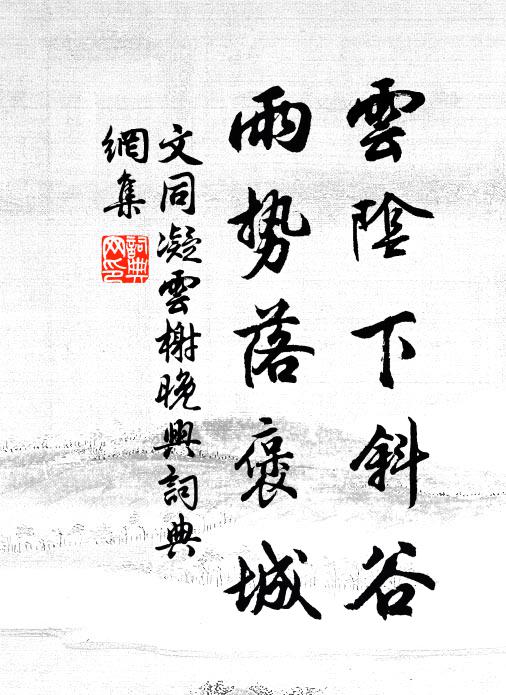 雲陰下斜谷
雨勢落褒城
文同凝雲榭晚興詞典
網集
詞典
网印